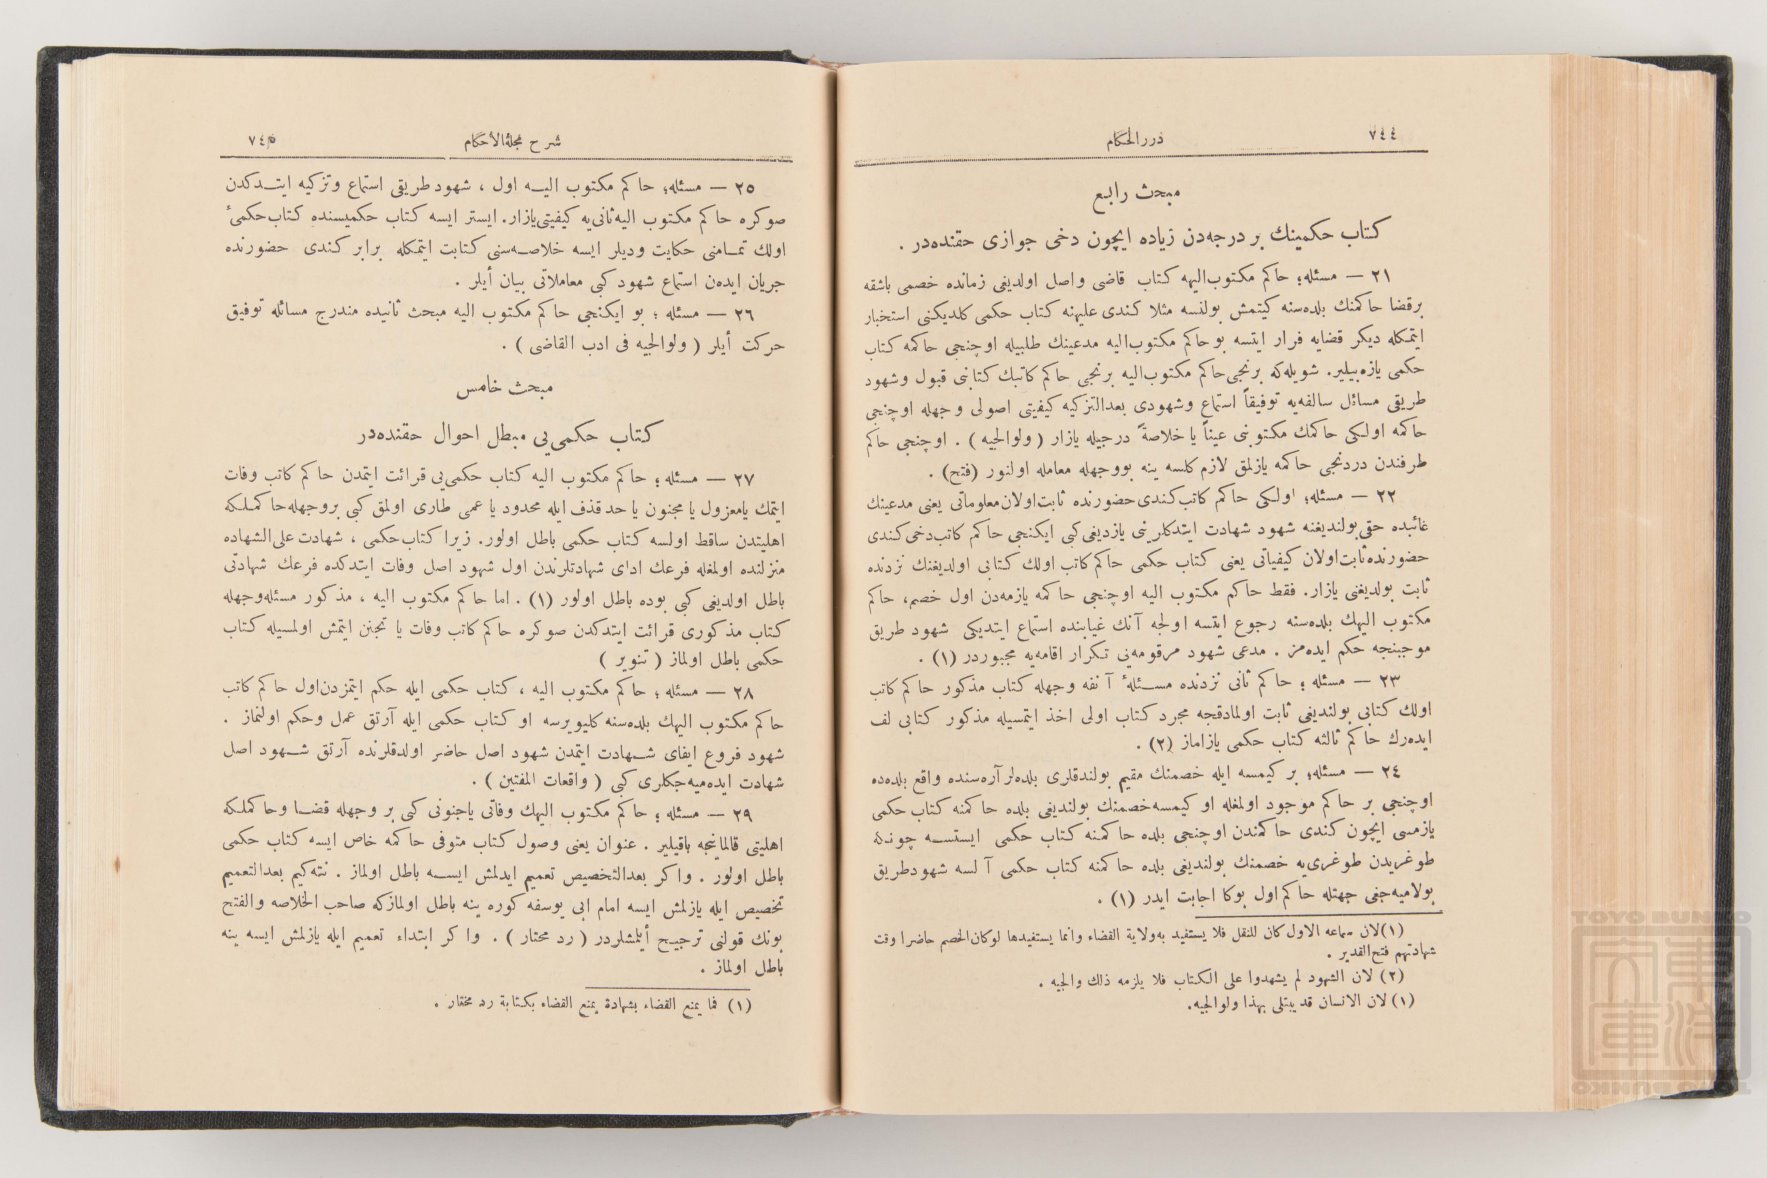 ٧٤٤
دررالحكام
مبحث رابع
كتاب حكمينك بر درجه‌دن زياده ايچون دخى جوازى حقنده‌در .
٢١ — مسئله؛ حاكم مكتوب‌اليهه كتاب قاضى واصل اولديغى زمانده خصمى باشقه
برقضا حاكمنك بلده‌سنه كيتمش بولنسه مثلا كندى عليهنه كتاب حكمى كلديكنى استخبار
ايتمكله ديكر قضايه فرار ايتسه بوحاكم مكتوب‌اليه مدعينك طلبيله اوچنجى حاكمه كتاب
حكمى يازه‌بيلير. شويله‌كه برنجى‌حاكم مكتوب‌اليه برنجى حاكم كاتبك كتابنى قبول وشهود
طريقى مسائل سالفه‌يه توفيقاً استماع وشهودى بعدالتزكيه كيفيتى اصولى وجهله اوچنجى
حاكمه اولكى حاكمك مكتوبنى عيناً يا خلاصةً درجيله يازار ( ولوالجيه ) . اوچنجى حاكم
طرفندن دردنجى حاكمه يازلمق لازم كلسه ينه بووجهله معامله اولنور (فتح) .
٢٢ — مسئله؛ اولكى حاكم كاتب‌كندى‌حضورنده ثابت‌اولان‌معلوماتى يعنى مدعينك
غائبده حقى‌بولنديغنه شهود شهادت ايتدكلرينى يازديغى‌كبى ايكنجى حاكم كاتب‌دخى‌كندى
حضورنده‌ثابت‌اولان كيفياتى يعنى كتاب حكمى حاكم‌كاتب اولك كتابى اولديغنك نزدنده
ثابت بولديغنى يازار. فقط حاكم مكتوب اليه اوچنجى حاكمه يازمه‌دن اول خصم، حاكم
مكتوب اليهك بلده‌سنه رجوع ايتسه اولجه آنك غيابنده استماع ايتديكى شهود طريق
موجبنجه حكم ايده‌مز . مدعى شهود مرقومه‌يى تكرار اقامه‌يه مجبوردر (١) .
٢٣ — مسئله ؛ حاكم ثانى نزدنده مسئلهٔ آنفه وجهله كتاب مذكور حاكم كاتب
اولك كتابى بولنديغى ثابت اولمادقجه مجرد كتاب اولى اخذ ايتمسيله مذكور كتابى لف
ايده‌رك حاكم ثالثه كتاب حكمى يازاماز (٢) .
٢٤ — مسئله؛ بر كيمسه ايله خصمنك مقيم بولندقلرى بلده‌لر آره‌سنده واقع بلده‌ده
اوچنجى بر حاكم موجود اولمغله او كيمسه‌خصمنك بولنديغى بلده حاكمنه كتاب حكمى
يازمسى ايچون كندى حاكمندن اوچنجى بلده حاكمنه كتاب حكمى ايستسه چونكه
طوغريدن طوغرى‌يه خصمنك بولنديغى بلده حاكمنه كتاب حكمى آلسه شهودطريق
بولاميه‌جغى جهتله حاكم‌اول بوكا اجابت ايدر (١) .
(١)لان سماعه الاول‌كان للنقل فلا يستفيد به‌ولاية القضاء وانما يستفيدها لوكان‌الخصم حاضرا وقت
شهادتهم فتح‌القدير .
(٢) لان الشهود لم يشهدوا على الكتاب فلا يلزمه ذلك والجيه .
(١)لان الانسان قد يبتلى بهذا ولوالجيه.
شرح مجلةالاحكام
٧٤٥
٢٥ — مسئله؛ حاكم مكتوب اليه اول ، شهودطريقى استماع وتزكيه ايتدكدن
صوكره حاكم مكتوب اليه‌ثانى‌يه كيفيتى‌يازار. ايستر ايسه كتاب حكميسنده كتاب‌حكمىٔ
اولك تمامنى حكايت وديلر ايسه خلاصه‌سنى كتابت ايتمكله برابر كندى حضورنده
جريان ايده‌ن استماع شهود كبى معاملاتى بيان أيلر .
٢٦ — مسئله ؛ بو ايكنجى حاكم مكتوب اليه مبحث ثانيده مندرج مسائله توفيق
حركت أيلر ( ولوالجيه فى ادب القاضى ) .
مبحث خامس
كتاب حكمى‌يى مبطل احوال حقنده‌در
٢٧ — مسئله ؛ حاكم مكتوب اليه كتاب حكمى‌يى قرائت ايتمدن حاكم كاتب وفات
ايتمك يامعزول يا مجنون يا حد قذف ايله محدود يا عمى طارى اولمق كبى بروجهله‌حاكملكه
اهليتدن ساقط اولسه كتاب حكمى باطل اولور. زيرا كتاب‌حكمى ، شهادت على‌الشهاده
منزلنده اولمغله فرعك اداى شهادتلرندن اول شهود اصل وفات ايتدكده فرعك شهادتى
باطل اولديغى كبى بوده باطل اولور (١) . اما حاكم مكتوب اليه ، مذكور مسئله‌وجهله
كتاب مذكورى قرائت ايتدكدن صوكره حاكم‌كاتب وفات يا تجنن ايتمش اولمسيله كتاب
حكمى باطل اولماز ( تنوير )
٢٨ — مسئله ؛ حاكم مكتوب اليه ، كتاب حكمى ايله حكم ايتمزدن‌اول حاكم كاتب
حاكم مكتوب اليهك بلده‌سنه كليويرسه او كتاب حكمى ايله آرتق عمل وحكم اولنماز .
شهود فروع ايفاى شهادت ايتمدن شهود اصل حاضر اولدقلرنده آرتق شهود اصل
شهادت ايده‌ميه‌جكلرى كبى ( واقعات المفتين ) .
٢٩ — مسئله ؛ حاكم مكتوب اليهك وفاتى ياجنونى كبى بر وجهله قضا وحاكملكه
اهليتى قالماينجه باقيلير . عنوان يعنى وصول كتاب متوفى حاكمه خاص ايسه كتاب حكمى
باطل اولور . واكر بعدالتخصيص تعميم ايدلمش ايسه باطل اولماز . نته‌كيم بعدالتعميم
تخصيص ايله يازلمش ايسه امام ابى يوسفه كوره ينه باطل اولمازكه صاحب الخلاصه والفتح
بونك قولنى ترجيح أيلمشلردر ( رد محتار ) . واكر ابتداء تعميم ايله يازلمش ايسه ينه
باطل اولماز .
(١) فما يمنع القضاء بشهادة يمنع القضاء بكتابة رد مختار .
TOYO BUNKO
東洋文庫
TOYO BUNKO